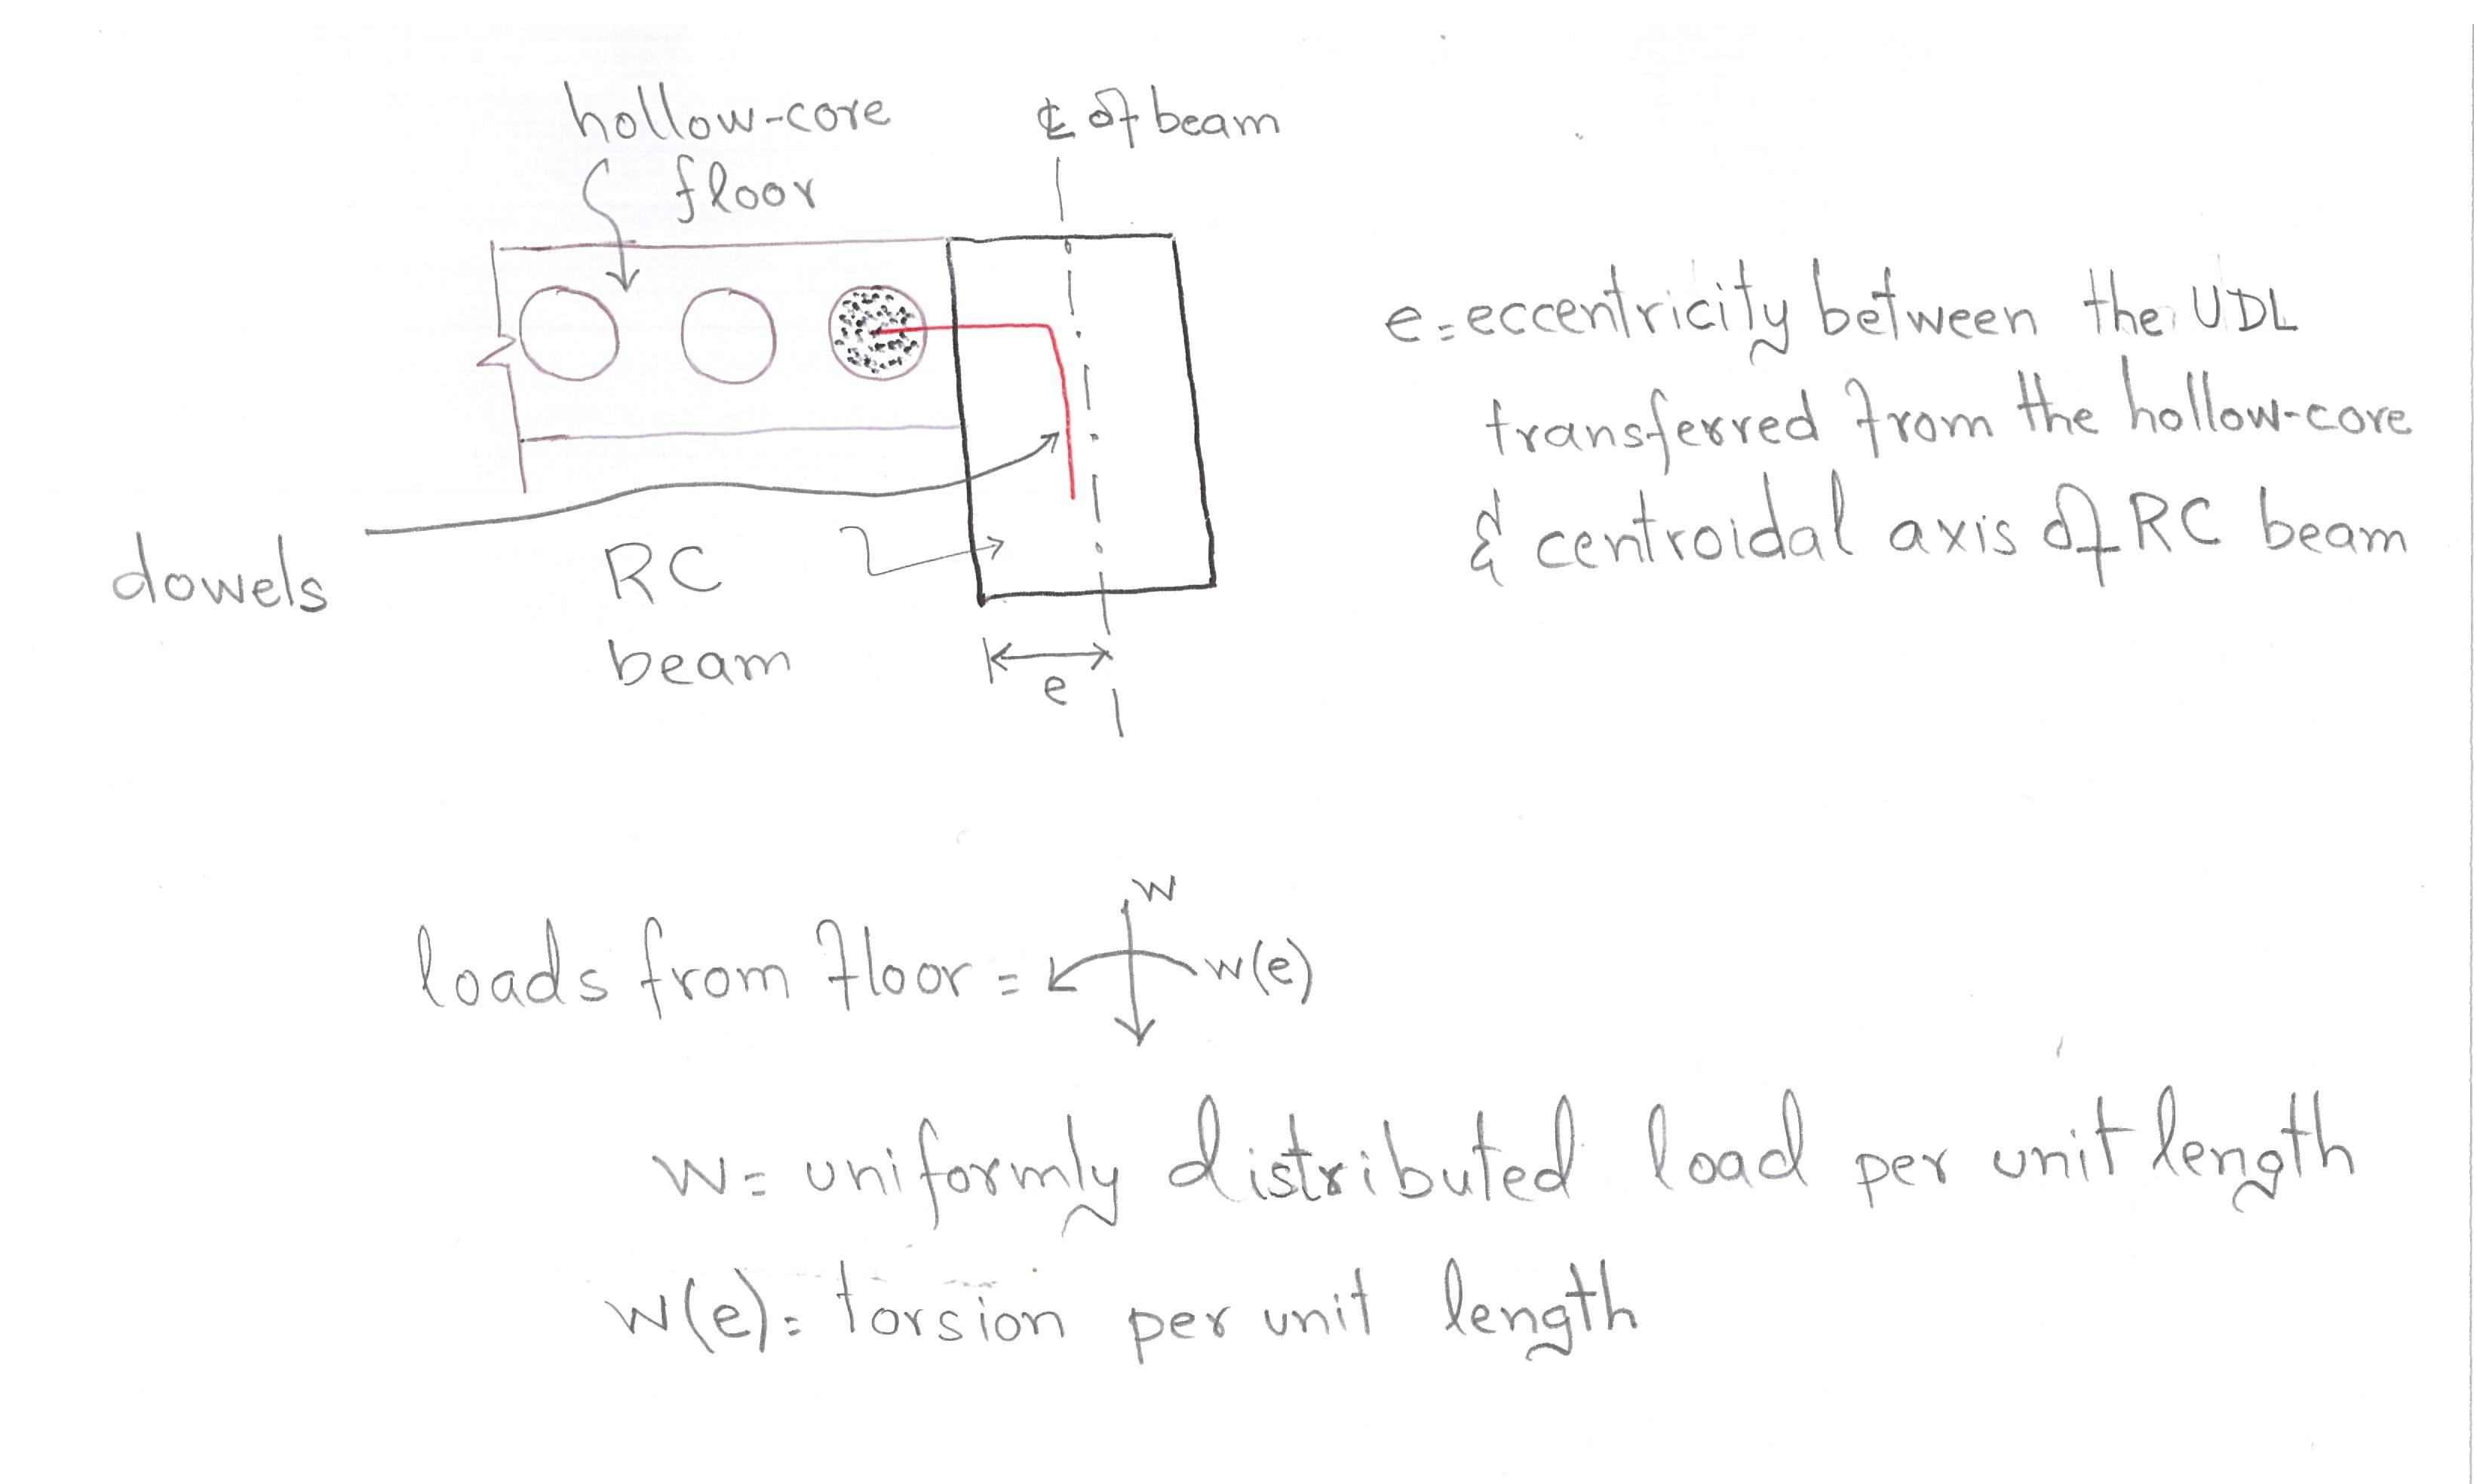 hollow-core
floor
℄ of beam
e = eccentricity between the UDL
transferred from the hollow-core
& centroidal axis of RC beam
dowels
RC
beam
e
loads from floor =
w
w(e)
W = uniformly distributed load per unit length
w(e) = torsion per unit length